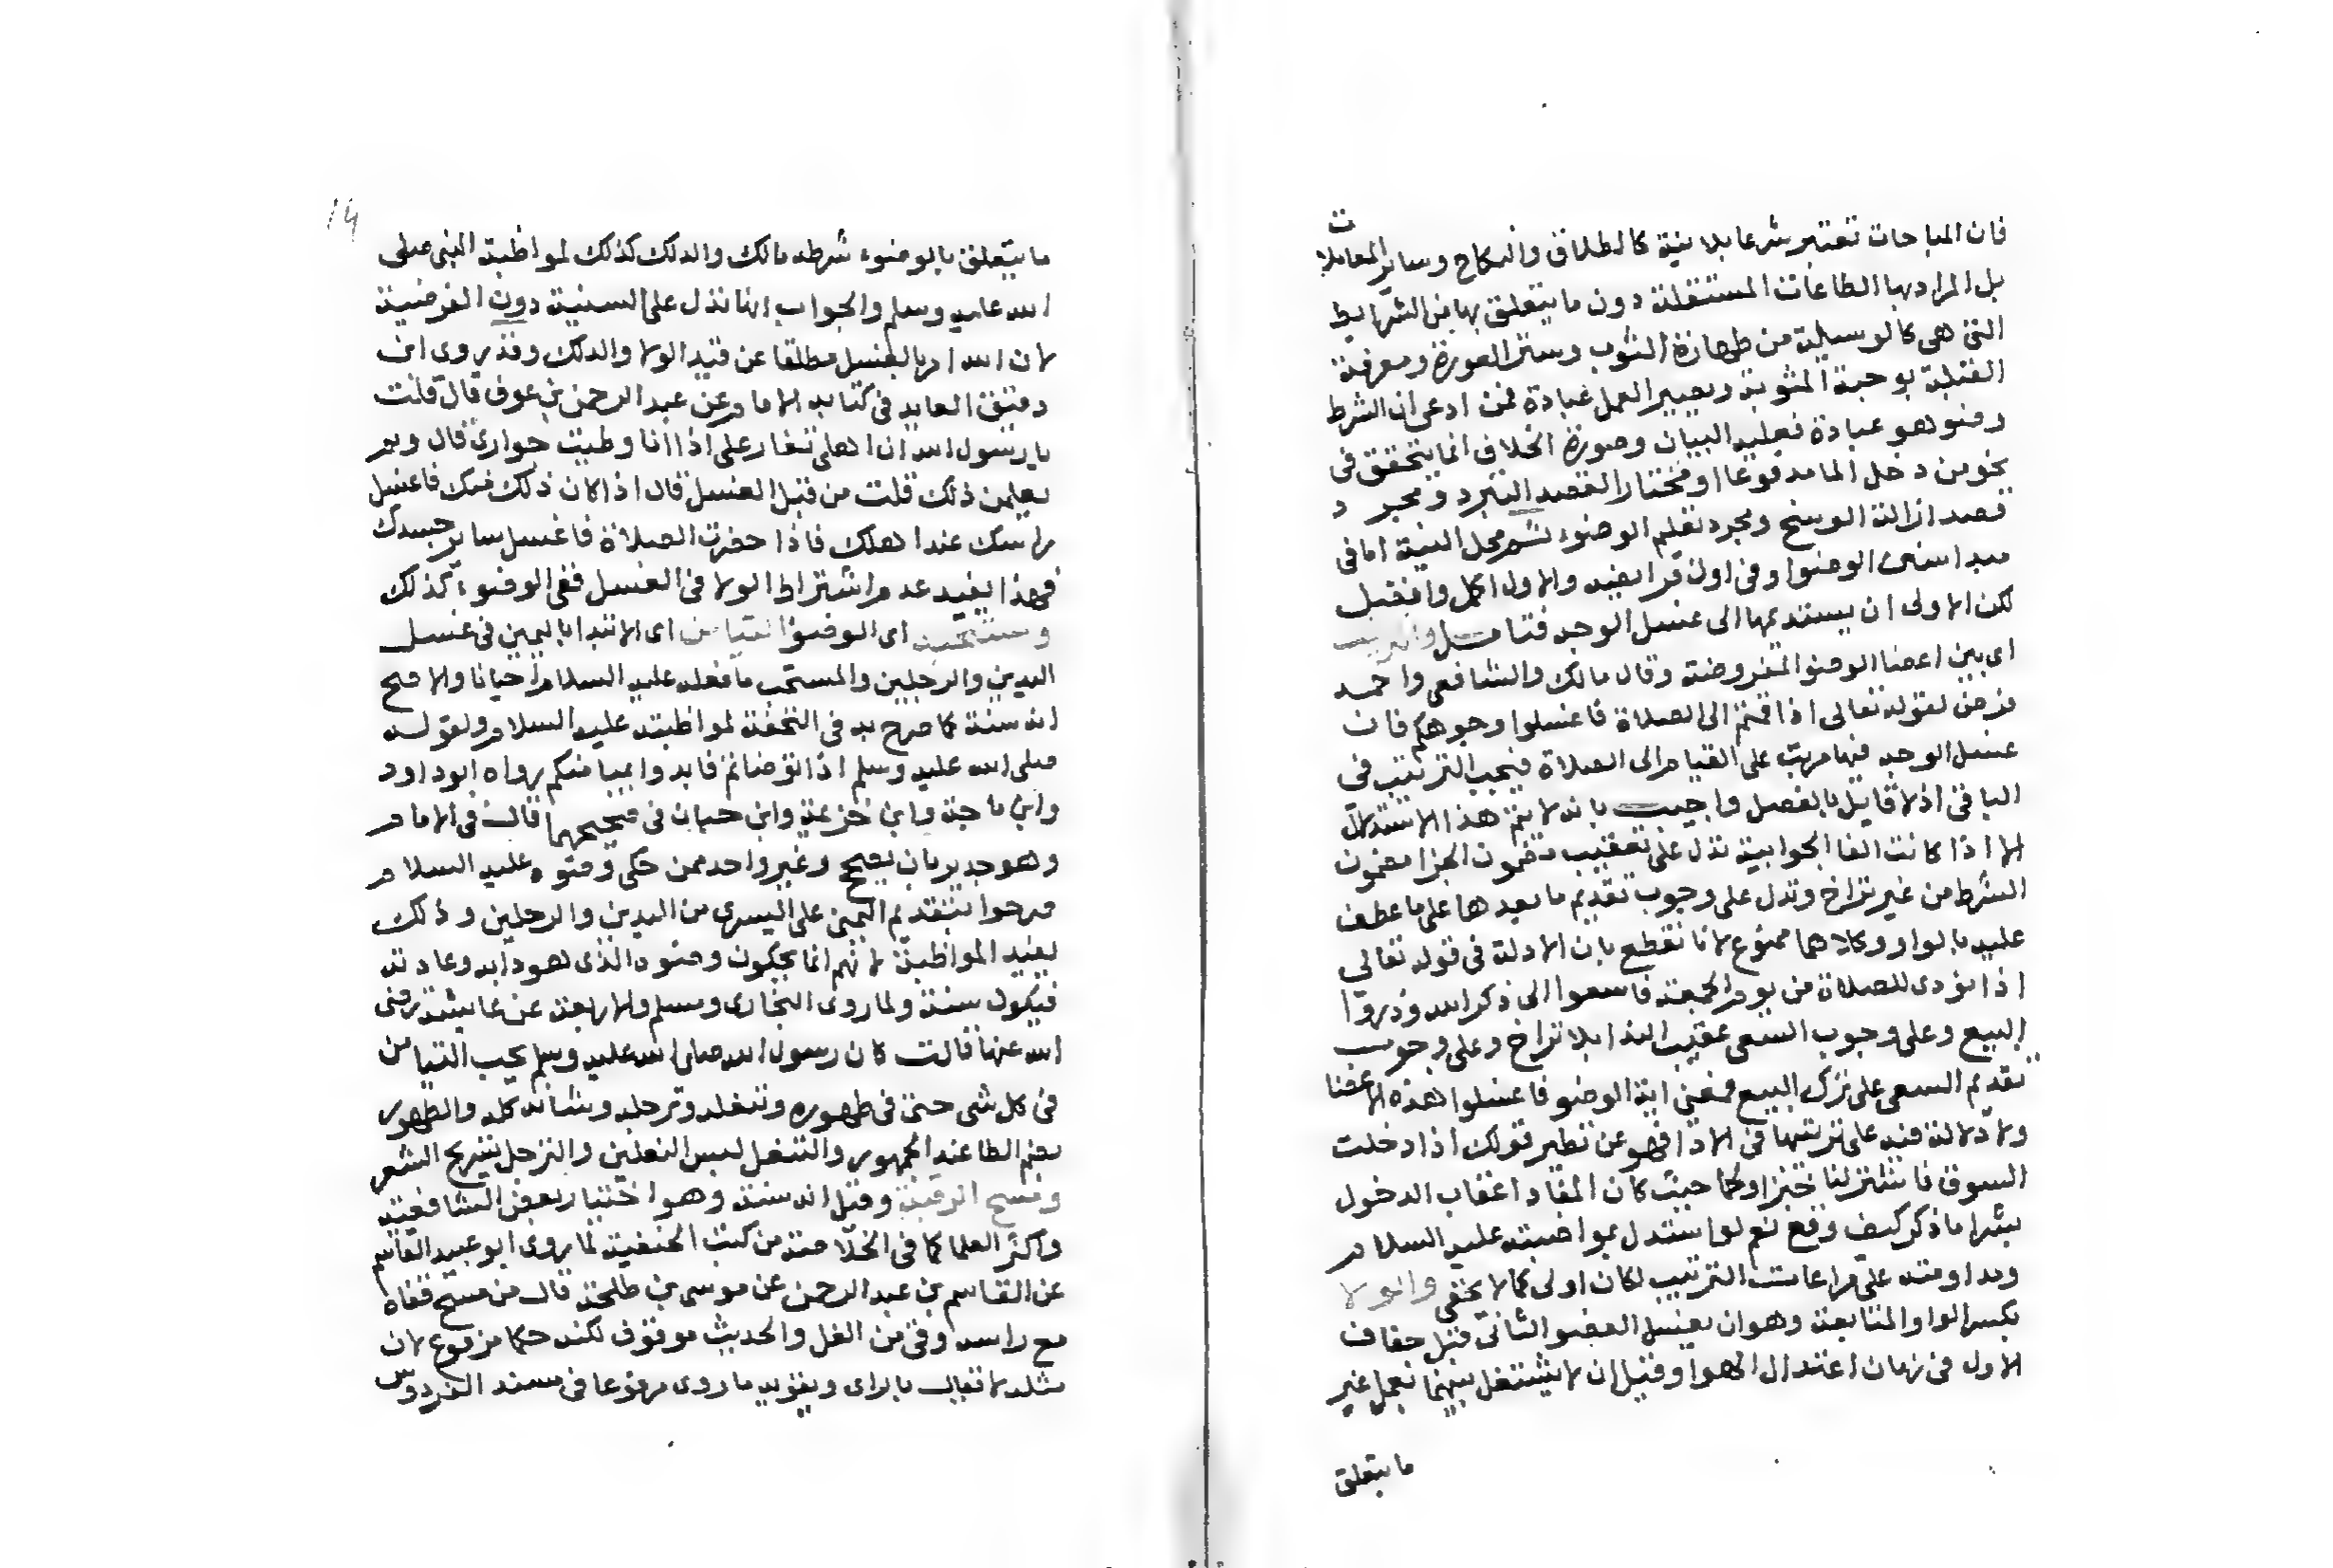 فان المباحات تعتبر شرعا بلا نية كالطلاق والنكاح وساير المعاملات
بل المراد بها الطاعات المستقلة دون ما يتعلق بها من الشرايط
التى هى كالوسيلة من طهارة الثوب وستر العورة ومعرفة
القبلة بوجبة المثوبة ويصير العمل عبادة فمن ادعى ان الشرط
وضو هو عبادة فعليه البيان وصورة الخلاف انما يتحقق فى
نحو من دخل الما مدفوعا او مختارا لقصد التبرد و مجرد
قصد ازالة الوسخ ومجرد تعليم الوضوء ثم محل النية اما فى
مبدا سنن الوضوا وفى اول فرايضه والاول اكمل وافضل
لكن الاولى ان يستديمها الى غسل الوجه فتامل والترتيب
اى بين اعضا الوضو المفروضة وقال مالك والشافعى واحمد
فرض لقوله تعالى اذا قمتم الى الصلاة فاغسلوا وجوهكم فان
غسل الوجه فيها مرتب على القيام الى الصلاة فيجب الترتيب فى
الباقى اذ لا قايل بالفصل واجيب بانه لا يتم هذا الاستدلال
الا اذا كانت الفا الجوابية تدل على تعقيب مضمون الجزا مضمون
الشرط من غير تراخ وتدل على وجوب تقديم ما بعدها على ما عطف
عليه بالواو وكلاهما ممنوع لانا نقطع بان الا دلة فى قوله تعالى
اذا نودى للصلاة من يوم الجمعة فاسعوا الى ذكر الله وذروا
البيع وعلى وجوب السعى عقيب الندا بلا تراخ وعلى وجوب
تقديم السعى على ترك البيع فمعنى اية الوضو فاغسلوا هذه الاعضا
ولا دلالة فيه على ترتيبها فى الاذا فهو عن نظير قولك اذا دخلت
السوق فاشتر لنا خبزا ولحما حيث كان المفاد اعقاب الدخول
بشرا ما ذكر كيف وقع نعم لو استدل بمواضبته عليه السلام
ومداومته على مراعات الترتيب لكان اولى كما لا يخفى والولا
بكسر الواو المتابعة وهو ان يغسل العضو الثانى قبل جفاف
الاول فى زمان اعتدال الهوا وقيل ان لا يشتغل بينهما بعمل غير
ما يتعلق
14
ما يتعلق بالوضوء شرطه مالك والدلك كذلك لمواظبة النبى صلى
الله عليه وسلم والجواب انها تدل على السنية دون الفرضية
لان الله امر بالغسل مطلقا عن قيد الولا والدلك وقد روى ابن
دقيق العابد فى كتابه الامام عن عبد الرحمن بن عوف قال قلت
يا رسول الله ان اهلى تغار على اذا انا وطيت جوارى قال وبم
يعلمن ذلك قلت من قبل الغسل قال اذا كان ذلك منك فاغسل
راسك عند اهلك فاذا حضرت الصلاة فاغسل ساير جسدك
فهذا يفيد عدم اشتراط الولا فى الغسل ففى الوضوء كذلك
ومستحبه اى الوضو التيامن اى الابتدا باليمين فى غسل
اليدين والرجلين والمستحب ما فعله عليه السلام احيانا والاصح
انه سنة كما صرح به فى التحفة لمواظبته عليه السلام ولقوله
صلى الله عليه وسلم اذا توضاتم فابدوا بميامنكم رواه ابو داود
وابن ماجة وابن خزيمة وابن حبان فى صحيحهما قال فى الامام
وهو جدير بان يصح وغير واحد ممن حكى وضوءه عليه السلام
صرحوا بتقديم اليمنى على اليسرى من اليدين والرجلين وذلك
يفيد المواظبة لانهم انما يحكون وضوه الذى هو دابه وعادته
فيكون سنة ولما روى البخارى ومسلم والاربعة عن عايشة رضى
الله عنها قالت كان رسول الله صلى الله عليه وسلم يحب التيامن
فى كل شى حتى فى طهوره وتنعله وترجله وشانه كله والطهور
بضم الطا عند الجمهور والتنعل لبس النعلين والترجل تسريح الشعر
ومسح الرقبة وقيل انه سنة وهو اختيار بعض الشافعية
واكثر العلما كما فى الخلاصة من كتب الحنفية لما روى ابو عبيد القاسم
عن القاسم بن عبد الرحمن عن موسى بن طلحة قال من مسح قفاه
مع راسه وقى من الغل والحديث موقوف لكنه حكما مرفوع لان
مثله لا يقال بالراى ويقويه ما روى مرفوعا فى مسند الفردوس